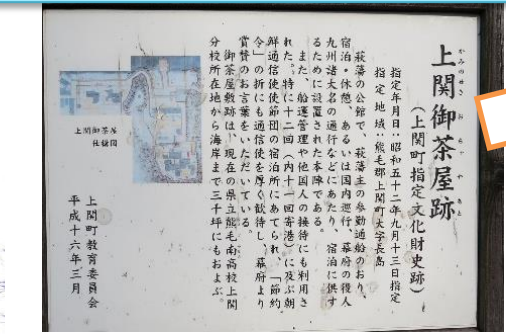 上関御茶屋跡
かみのせき お ちゃ や あと
（上関町指定文化財史跡）
指定年月日：昭和五十二年九月十三日指定
指定地域、熊毛郡上関町大字長島
萩藩の公館で、萩藩主の参勤通船のおり、
宿泊・休憩、あるいは国内巡行、幕府の役人
九州諸大名の通行などにあたり、宿泊に供す
るために設置された本陣である。
また、船運管理や他国人の接待にも利用さ
れた。特に十二回（内十一回寄港）に及ぶ朝
鮮通信使使節団の宿泊所にあてられ、「節約
令」の折にも通信使を厚く歓待し、幕府より
賞賛のお言葉をいただいている。
御茶屋敷跡は、現在の県立熊毛南高校上関
分校所在地から海岸まで三千坪にもおよぶ。
上関町教育委員会
平成十六年三月
上関御茶屋